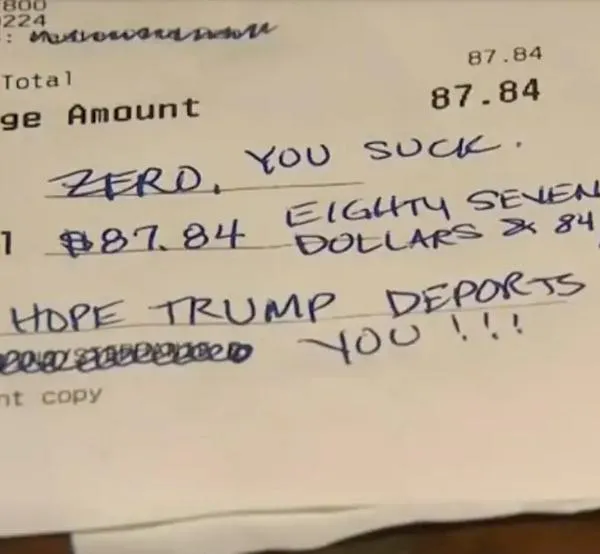 800
224
:
Total 87.84
ge Amount 87.84
ZERO, YOU SUCK.
l $87.84 EIGHTY SEVEN
DOLLARS & 84
HOPE TRUMP DEPORTS
YOU!!!
nt copy